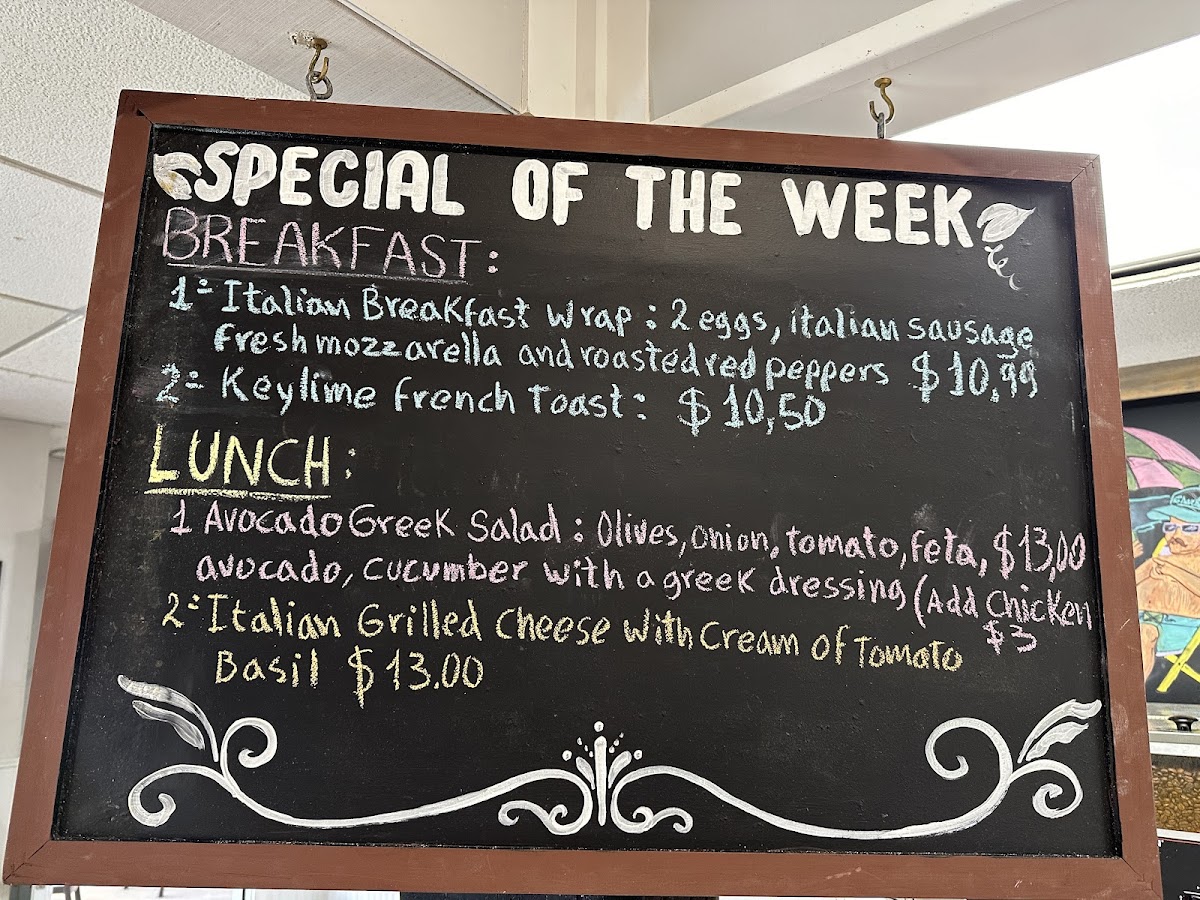 SPECIAL OF THE WEEK
BREAKFAST:
1= Italian Breakfast Wrap: 2 eggs, italian sausage
Fresh mozzarella and roasted red peppers $10,99
2= Keylime French Toast: $10,50
LUNCH:
1 Avocado Greek Salad: Olives, onion, tomato, feta, $13,00
avocado, cucumber with a greek dressing (Add Chicken
$3
2= Italian Grilled Cheese with Cream of Tomato
Basil $13.00